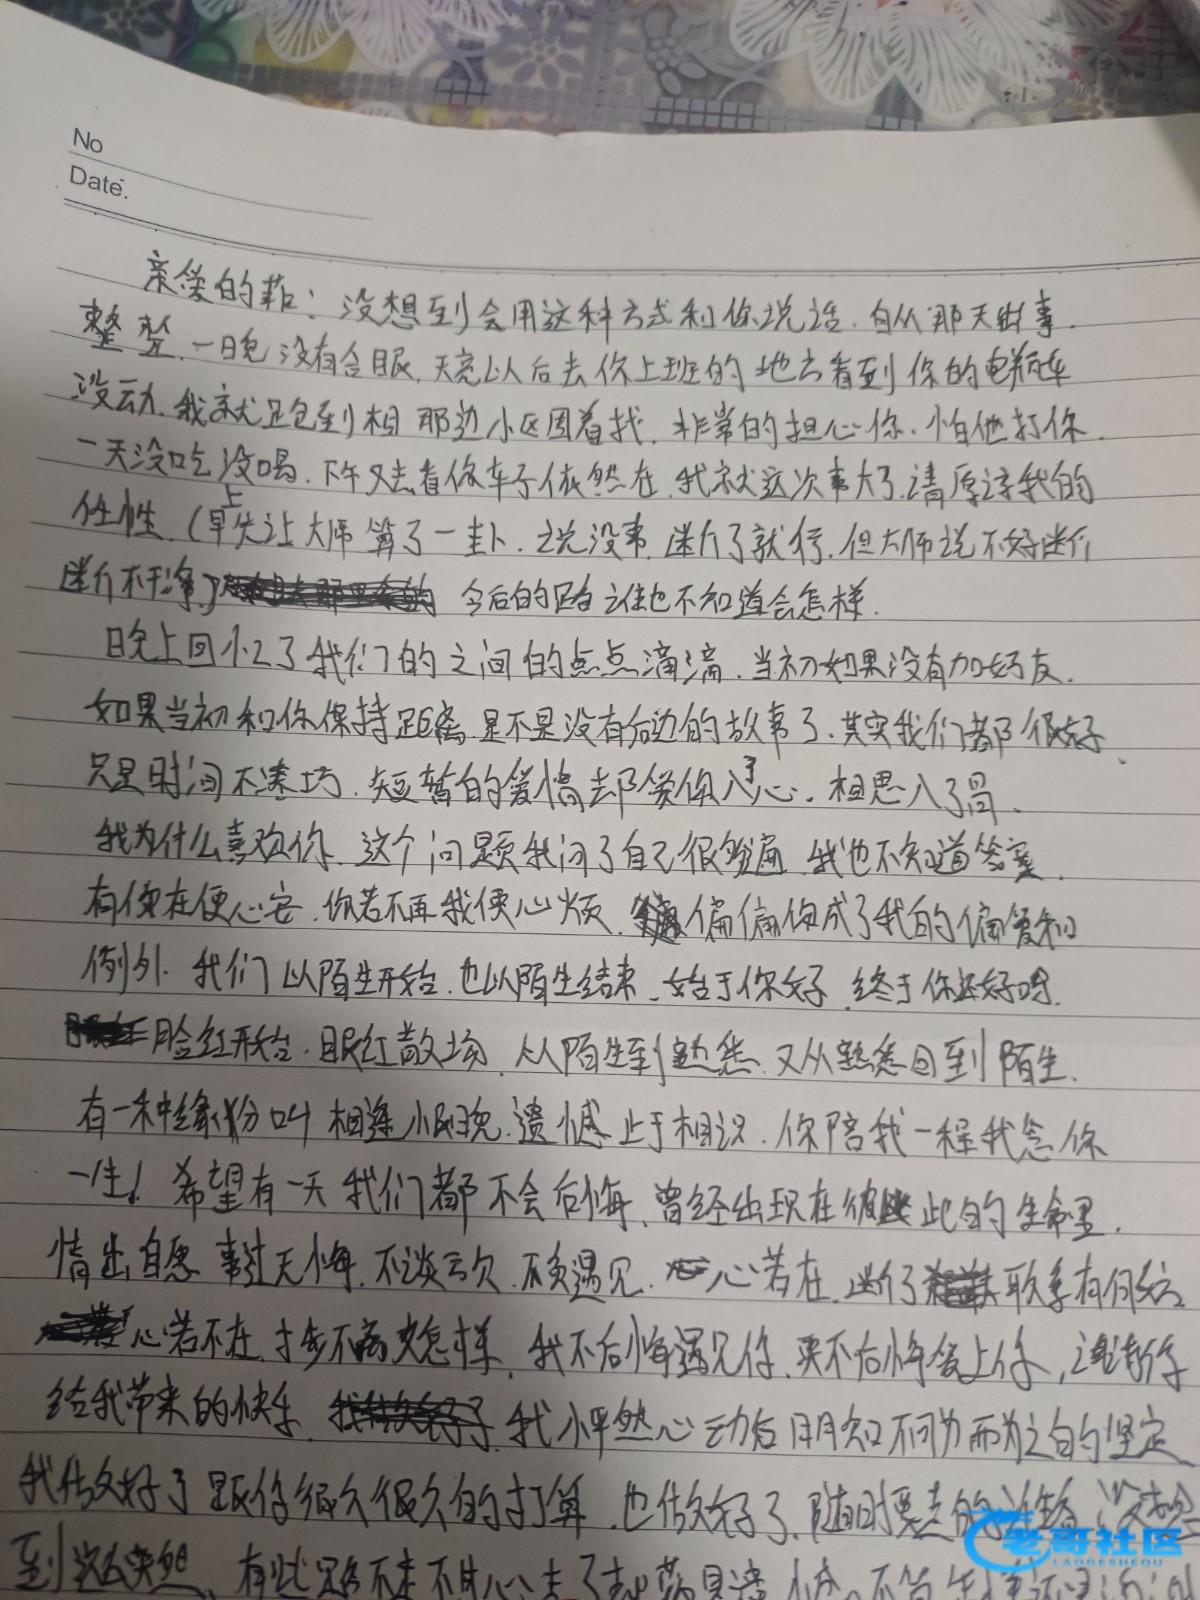 No
Date.
亲爱的：没想到会用这种方式和你说话.自从那天出事
整整.一晚没有合眼.天亮以后去你上班的地方看到你的电瓶车
没动.我就跑到相那边小区围着找.非常的担心你.怕他打你.
一天没吃没喝.下午又去看你车子依然在.我就这次事大了.请原谅我的
任性.(早上先让大师算了一卦.说没事.断了就行.但大师说不好断
断不干净)今后的路谁也不知道会怎样.
晚上回忆了我们的之间的点点滴滴.当初如果没有加好友.
如果当初和你保持距离.是不是没有后边的故事了.其实我们都很好.
只是时间不凑巧.短暂的爱情却爱你入了心.相思入了骨.
我为什么喜欢你.这个问题我问了自己很多遍.我也不知道答案.
有你在便心安.你若不再我便心烦.偏偏你成了我的偏爱和
例外.我们以陌生开始.也以陌生结束.始于你好.终于你还好吗.
脸红开始.眼红散场.从陌生到熟悉.又从熟悉回到陌生.
有一种缘份叫相逢恨晚.遗憾止于相识.你陪我一程我念你
一生!希望有一天我们都不会后悔.曾经出现在彼此的生命里.
情出自愿事过无悔.不谈亏欠.不负遇见.心若在.断了联系有何妨
心若不在.寸步不离又怎样.我不后悔遇见你.更不后悔爱上你,谢谢你
给我带来的快乐.我怦然心动后明知不可为而为之的坚定
我做好了跟你很久很久的打算.也做好了.随时要走的准备.没想
到这么突然.有些路不走不甘心走了
老哥社区
LAOGESHEQU